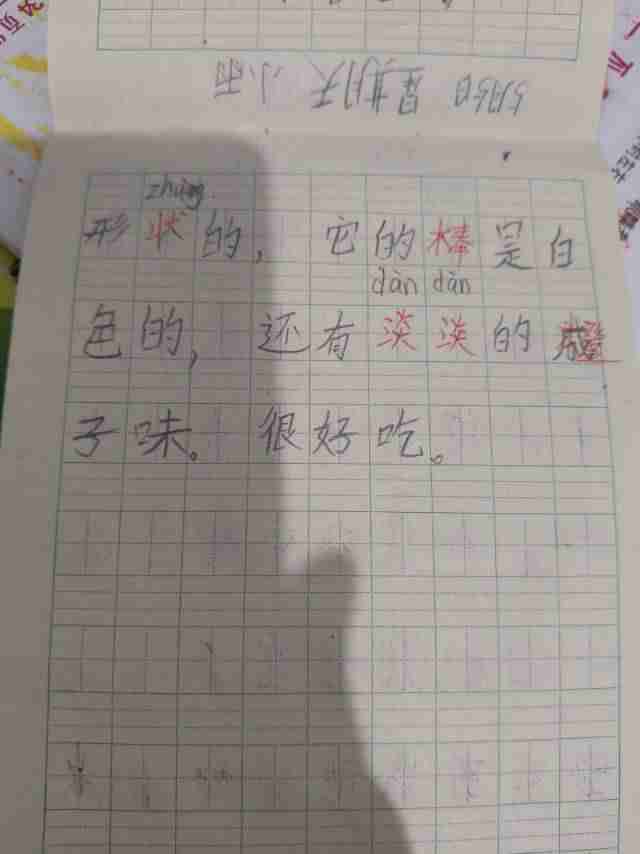 5月5日 星期天 小雨
zhuàng
形状的，它的棒是白
dàn dàn
色的，还有淡淡的橙
子味。很好吃。